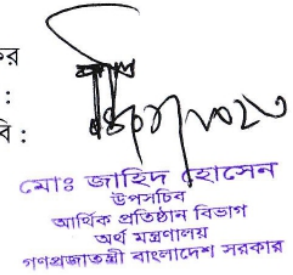 :
:
মোঃ জাহিদ হোসেন
উপসচিব
আর্থিক প্রতিষ্ঠান বিভাগ
অর্থ মন্ত্রণালয়
গণপ্রজাতন্ত্রী বাংলাদেশ সরকার